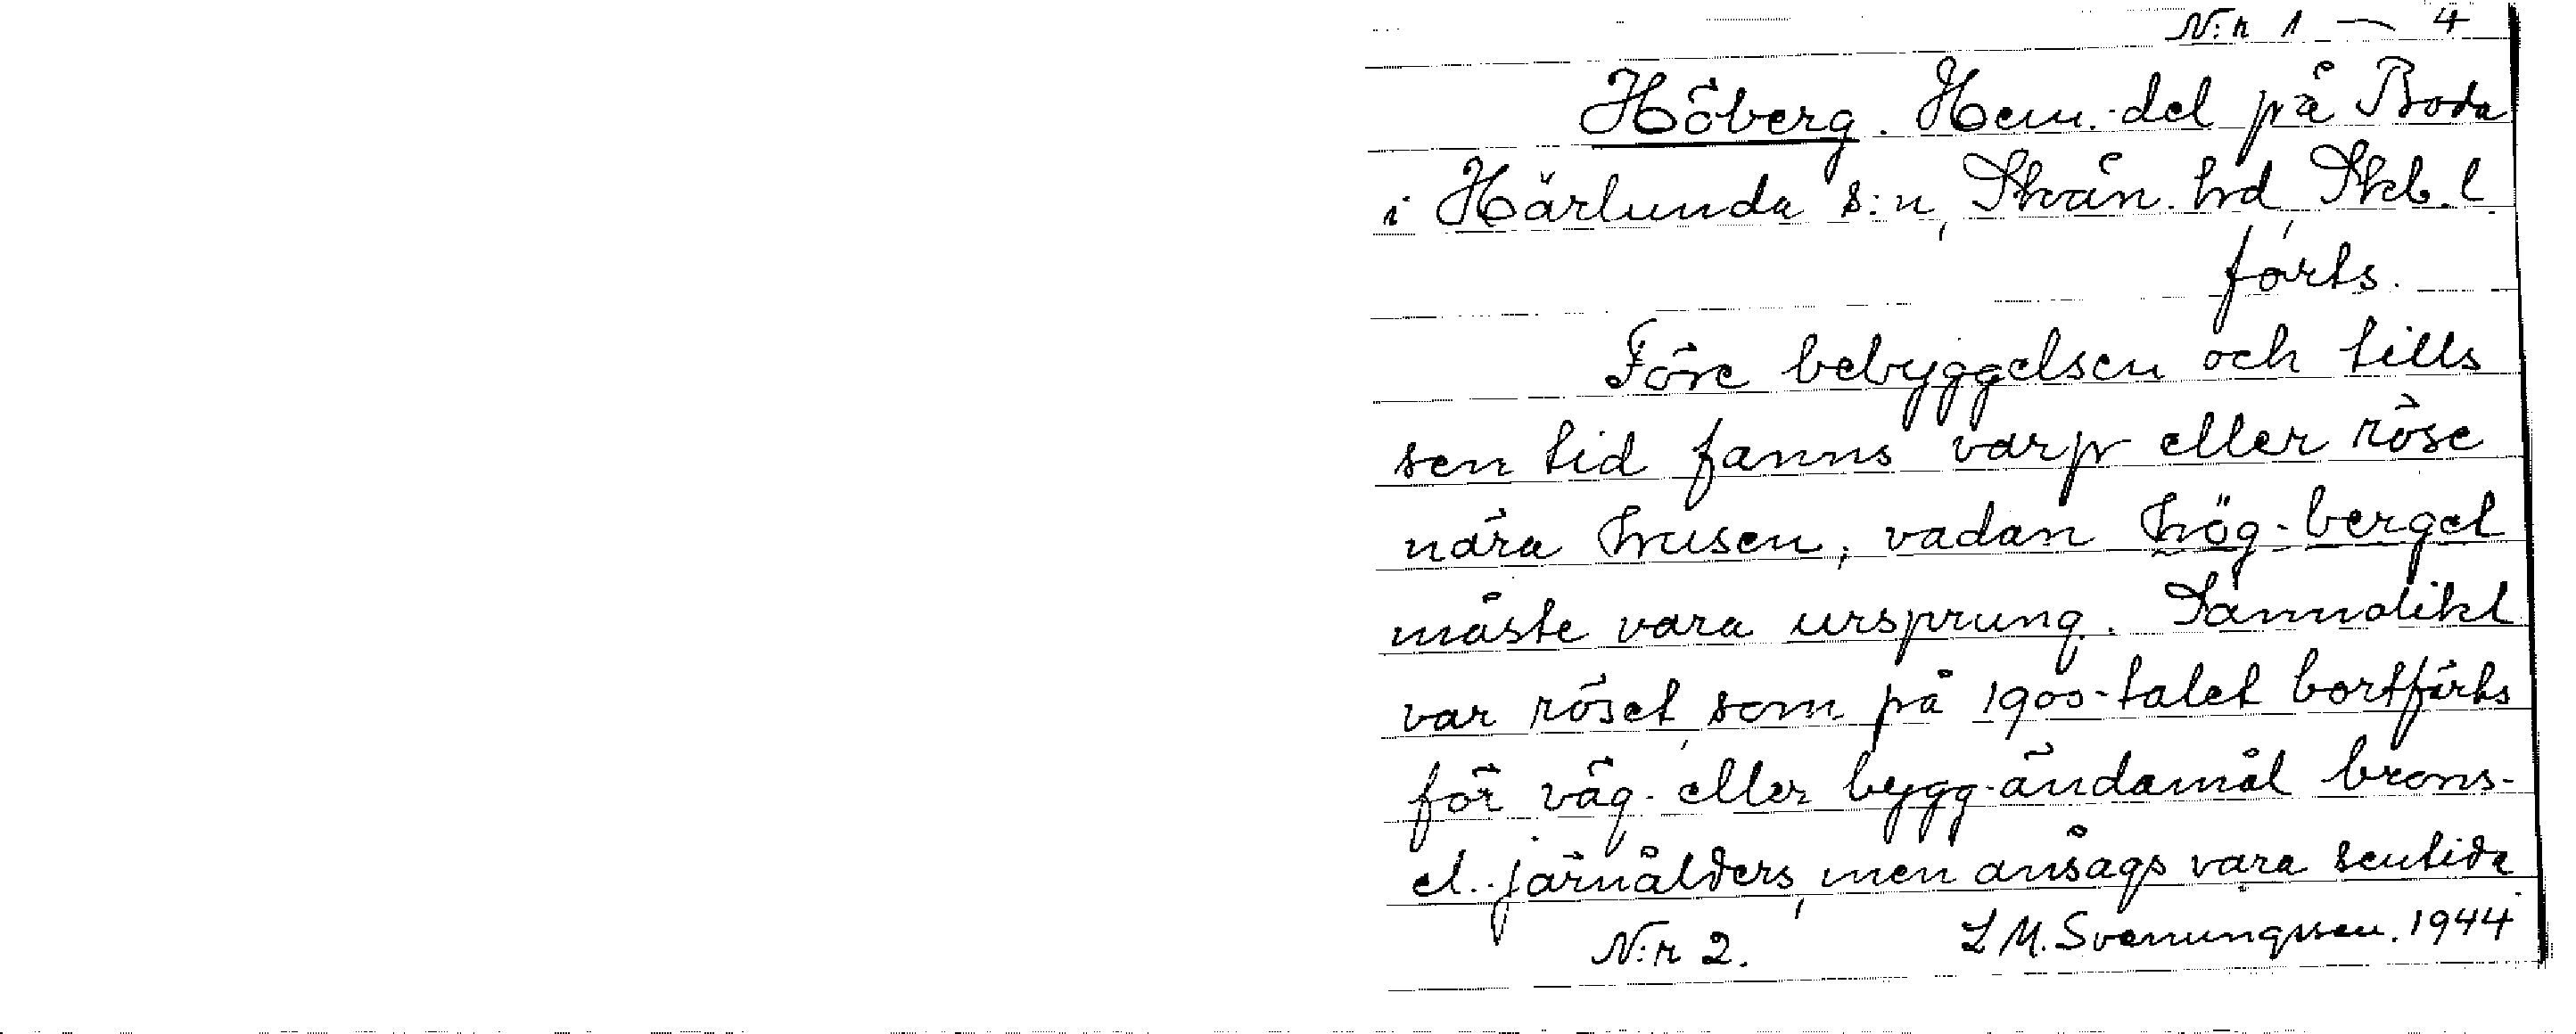 N:r 1 — 4
Höberg. Hem.-del på Boda
i Härlunda s:n, Skån. hd, Skb. l.
forts.
Före bebyggelsen och tills
sen tid fanns varp eller röse
nära husen, vadan hög-berget
måste vara ursprung. Sannolikt
var röset, som på 1900-talet bortförts
för väg- eller bygg-ändamål brons-
el. järnålders, men ansågs vara sentida
N:r 2. L M. Svenungsson. 1944